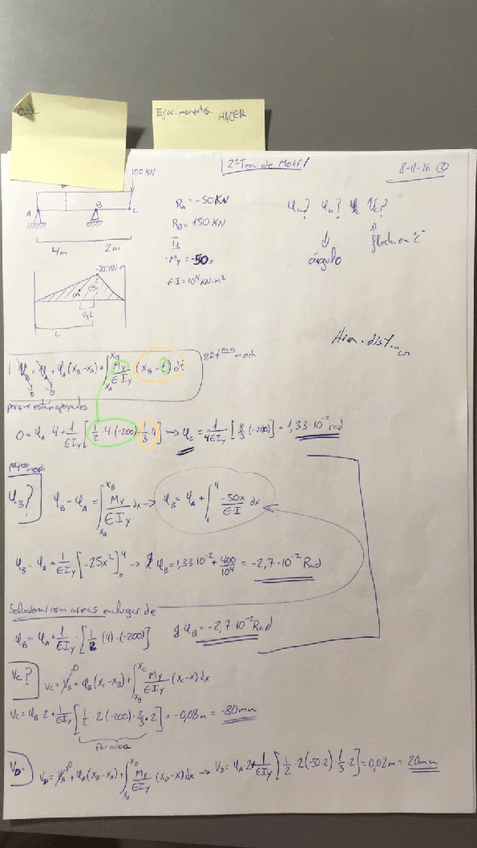 Ejer. momentos HACER
2º Teo de Mohr!
8-11-16 ②
100 KN
A B C
4m 2m
R_A = -50KN
R_B = 150 KN
M_y = -50x
EI = 10⁴ KN·m²
φ_A? φ_B? V_C?
ángulo
flecha en "C"
-200 KN·m
L
Area · dist
V_B = V_A + φ_A (x_B - x_A) + ∫ M_y/EI_y (x_B - t) dt
porque están apoyados
0 = φ_A · 4 + 1/EI_y [1/2 · 4 · (-200) · 1/3 · 4] → φ_A = 1/4EI_y [8/3 (-200)] = 1,33·10⁻² rad
φ_B? φ_B - φ_A = ∫ M_y/EI_y dx → φ_B = φ_A + ∫₀⁴ -50x/EI dx
φ_B = φ_A + 1/EI_y [-25x²]₀⁴ → φ_B = 1,33·10⁻² + 400/10⁴ = -2,7·10⁻² Rad
Solucion con areas en lugar de
φ_B = φ_A + 1/EI_y · [1/2 (4) · (-200)] φ_B = -2,7·10⁻² Rad
V_C? V_C = V_B + φ_B (x_C - x_B) + ∫ M_y/EI_y (x_C - x) dx
V_C = φ_B · 2 + 1/EI_y [1/2 · 2 (-200) · 2/3 · 2] = -0,08m = -80mm
V_D. V_D = V_A + φ_A (x_D - x_A) + ∫ M_y/EI_y (x_D - x) dx → V_D = φ_A · 2 + 1/EI_y [1/2 · 2 (-50·2) · 1/3 · 2] = 0,02m = 20mm